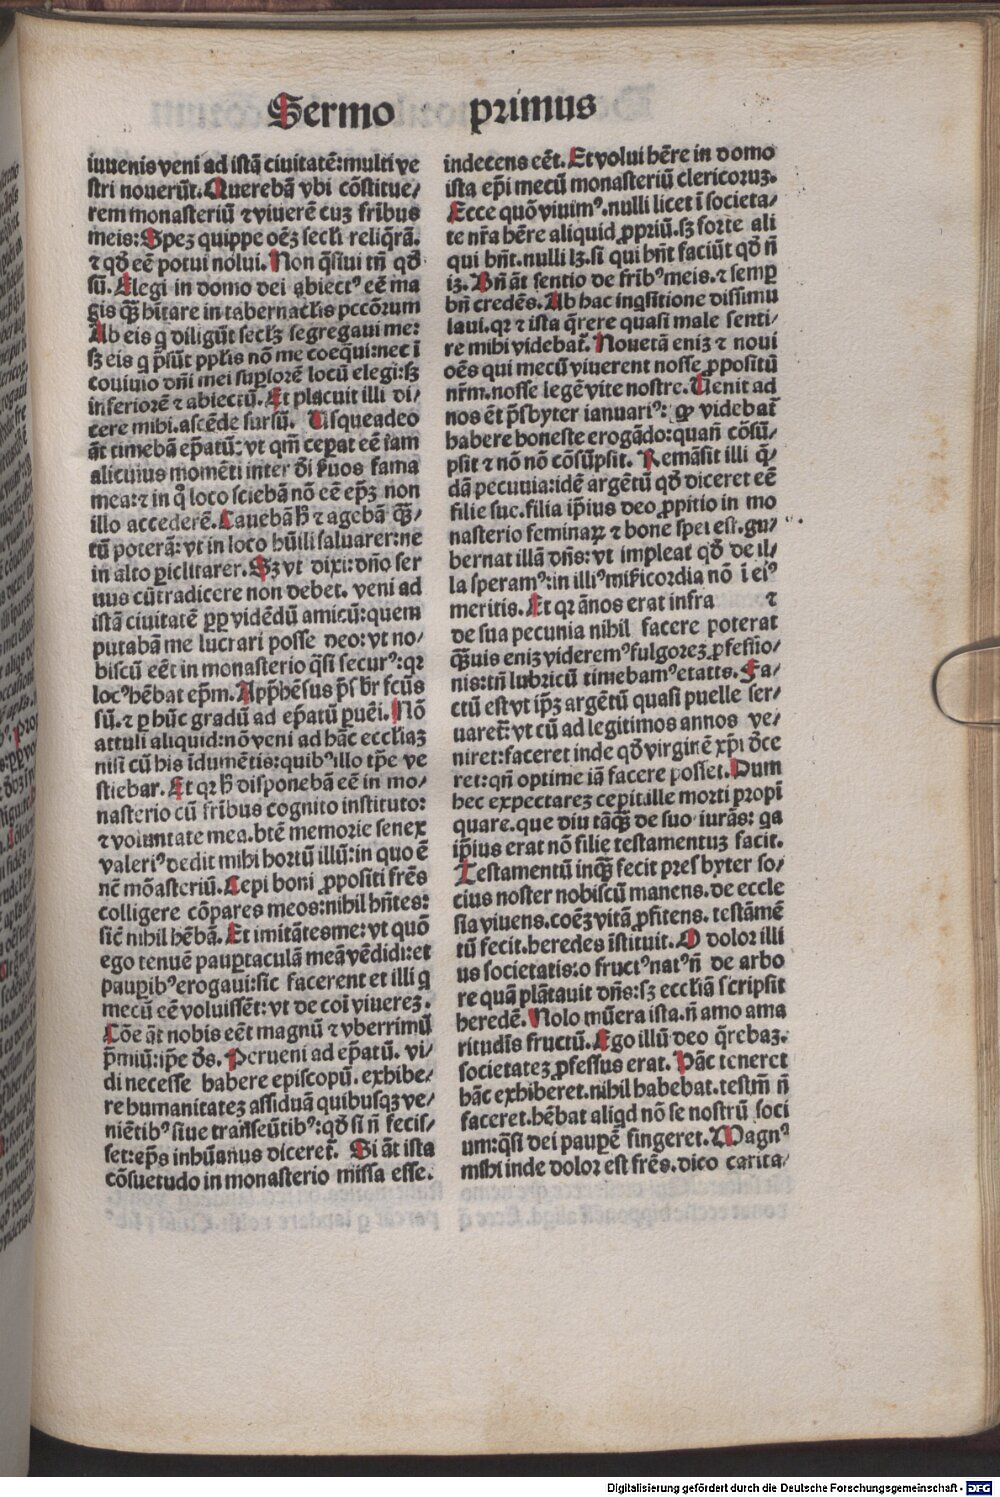 Sermo primus
iuvenis veni ad istā ciuitatē:multi ve
stri nouerūt. Querebā vbi cōstitue/
rem monasteriū ⁊ viuerē cuȝ fr̄ibus
meis: Speȝ quippe oēȝ sec̄li reliq̄rā.
⁊ qd̄ eē potui nolui. Non q̄siui tn̄ qd̄
sū. Elegi in domo dei abiectꝰ eē ma
gis q̄ȝ hītare in tabernac̄lis pccōrum
Ab eis q diligūt sec̄lȝ segregaui me:
sȝ eis q p̄sūt pp̄lis nō me coequi:nec ī
cōuiuio dn̄i mei sup̄iorē locū elegi:sȝ
inferiorē ⁊ abiectū. Et placuit illi di/
cere mihi.ascēde sursū. Usqueadeo
āt timebā ep̄atū:vt qm̄ cep̄at eē iam
alicuius momēti inter d̄i ẜuos fama
mea:⁊ in q̊ loco sciebā nō eē ep̄ȝ non
illo accederē. Cauebā h̄ ⁊ agebā q̄ȝ/
tū poterā: vt in loco hūili saluarer:ne
in alto ꝑiclitarer. Sȝ vt dixi:dn̄o ser
uus cūtradicere non debet. veni ad
istā ciuitatē ꝓp̄ vidēdū amicū:quem
putabā me lucrari posse deo:vt no/
biscū eēt in monasterio q̄si securꝰ:qꝛ
locꝰ hēbat ep̄m. App̄hēsus p̄sb̄r fc̄us
sū.⁊ ꝑ hūc gradū ad ep̄atū ꝑuēi. Nō
attuli aliquid:nō veni ad hāc eccl̄iaȝ
nisi cū his īdumētis:quibꝰ illo tp̄e ve
stiebar. Et qꝛ h̄ disponebā eē in mo/
nasterio cū fr̄ibus cognito instituto:
⁊ voluntate mea.btē memorie senex
valeriꝰ dedit mihi hortū illū:in quo ē
nc̄ mōasteriū. Cepi boni ꝓpositi frēs
colligere cōpares meos:nihil hn̄tes:
sic̄ nihil hēbā. Et imitātesme:vt quō
ego tenuē paupt̄aculā meā vēdidi:et
pauꝑibꝰ erogaui:sic facerent et illi q
mecū eē voluissēt:vt de coī viuereȝ.
Cōe āt nobis eēt magnū ⁊ vberrimū
p̄miū:ip̄e d̄s. Perueni ad ep̄atū. vi/
di necesse habere episcopū.exhibe/
re humanitateȝ assiduā quibusqȝ ve/
niētibꝰ siue trāseūtibꝰ:qd̄ si n̄ fecis/
set:ep̄s inhūanus diceret̄. Si āt ista
cōsuetudo in monasterio missa esse.
indecens eēt. Et volui hēre in domo
ista ep̄i mecū monasteriū clericoruȝ.
Ecce quō viuimꝰ.nulli licet ī societa/
te nr̄a hēre aliquid ꝓpriū.sȝ forte ali
qui hn̄t.nulli lȝ.si qui hn̄t faciūt qd̄ n̄
lȝ. Bn̄ āt sentio de fr̄ibꝰ meis.⁊ semꝑ
bn̄ credēs. Ab hac inq̄sitione dissimu
laui.qꝛ ⁊ ista q̄rere quasi male senti/
re mihi videbat̄. Nouetā eniȝ ⁊ noui
oēs qui mecū viuerent nosse ꝓpositū
nr̄m.nosse legē vite nostre. Uenit ad
nos ēt p̄sbyter ianuariꝰ: q videbat̄
habere honeste erogādo:quasi cōsū/
psit ⁊ nō nō cōsūpsit. Remāsit illi q̄/
dā pecunia:idē argētū qd̄ diceret eē
filie sue.filia ip̄ius deo ꝓpitio in mo
nasterio feminaꝝ ⁊ bone spei est.gu/
bernat illā dn̄s: vt impleat qd̄ de il/
la speramꝰ:in illiꝰ mīsericordia nō ī eiꝰ
meritis. Et qꝛ ānos erat infra ⁊
de sua pecunia nihil facere poterat
q̄ȝuis eniȝ videremꝰ fulgoreȝ ꝓfessio/
nis:tn̄ lubricū timebamꝰ etatis. Fa/
ctū est vt ip̄ȝ argētū quasi puelle ser/
uaret̄:vt cū ad legitimos annos ve/
niret:faceret inde qd̄ virginē xp̄i dēce
ret:qn̄ optime iā facere posset. Dum
hec expectareȝ cepit ille morti propī
quare.que diu tāq̄ȝ de suo iurās: qa
ip̄ius erat nō filie testamentuȝ facit.
Testamentū inq̄ȝ fecit presbyter so/
cius noster nobiscū manens.de eccle
sia viuens.coēȝ vitā ꝓfitens. testāmē
tū fecit.heredes īstituit. O dolor illi
us societatis:o fructꝰ natꝰ n̄ de arbo
re quā plātauit dn̄s:sȝ eccl̄iā scripsit
heredē. Nolo mūera ista.n̄ amo ama
ritudīs fructū. Ego illū deo q̄rebaȝ.
societateȝ ꝓfessus erat. Hāc teneret
hāc exhiberet.nihil habebat.testm̄ n̄
faceret.hēbat aliqd nō se nostrū soci
um:q̄si dei pauꝑē fingeret. Magnꝰ
mihi inde dolor est frēs.dico carita/
Digitalisierung gefördert durch die Deutsche Forschungsgemeinschaft - DFG